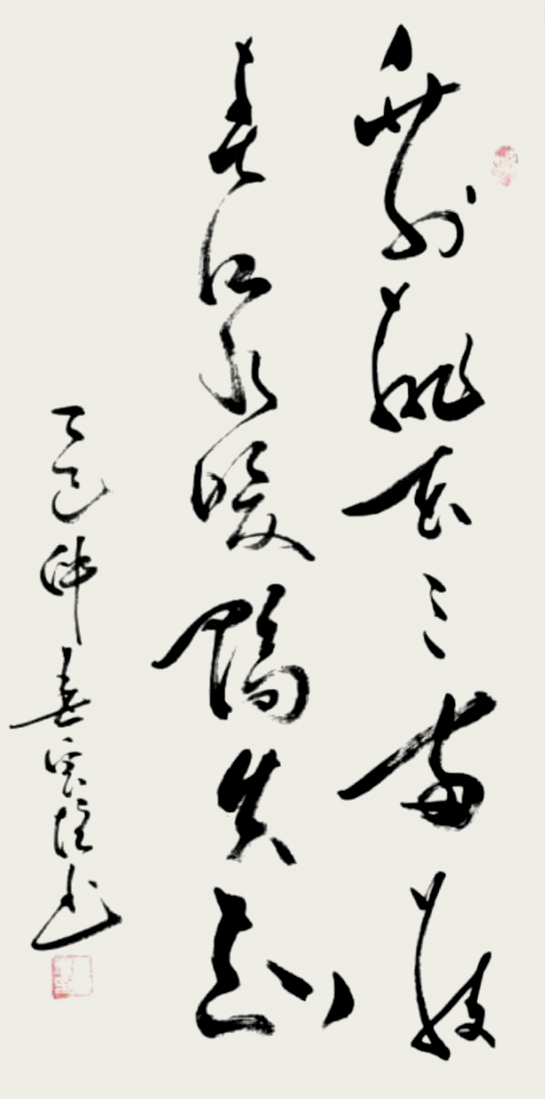 竹外桃花三兩枝
春江水暖鴨先知
乙巳仲春书